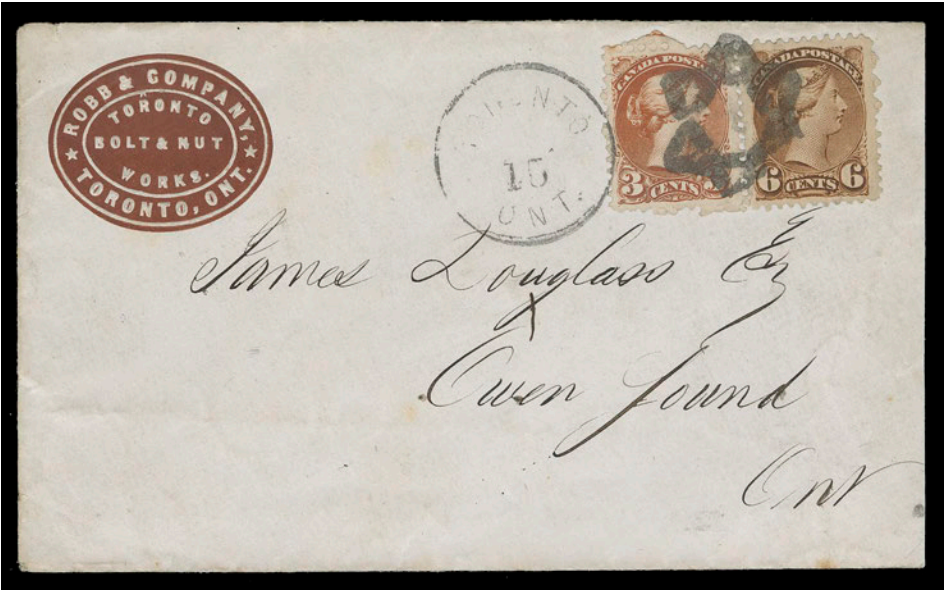 ROBB & COMPANY,
TORONTO
BOLT & NUT
WORKS.
★ TORONTO, ONT. ★
TORONTO
ONT.
CANADA POSTAGE
3 CENTS
CANADA POSTAGE
6 CENTS 6
James Douglass Eq
Owen Sound
Ont